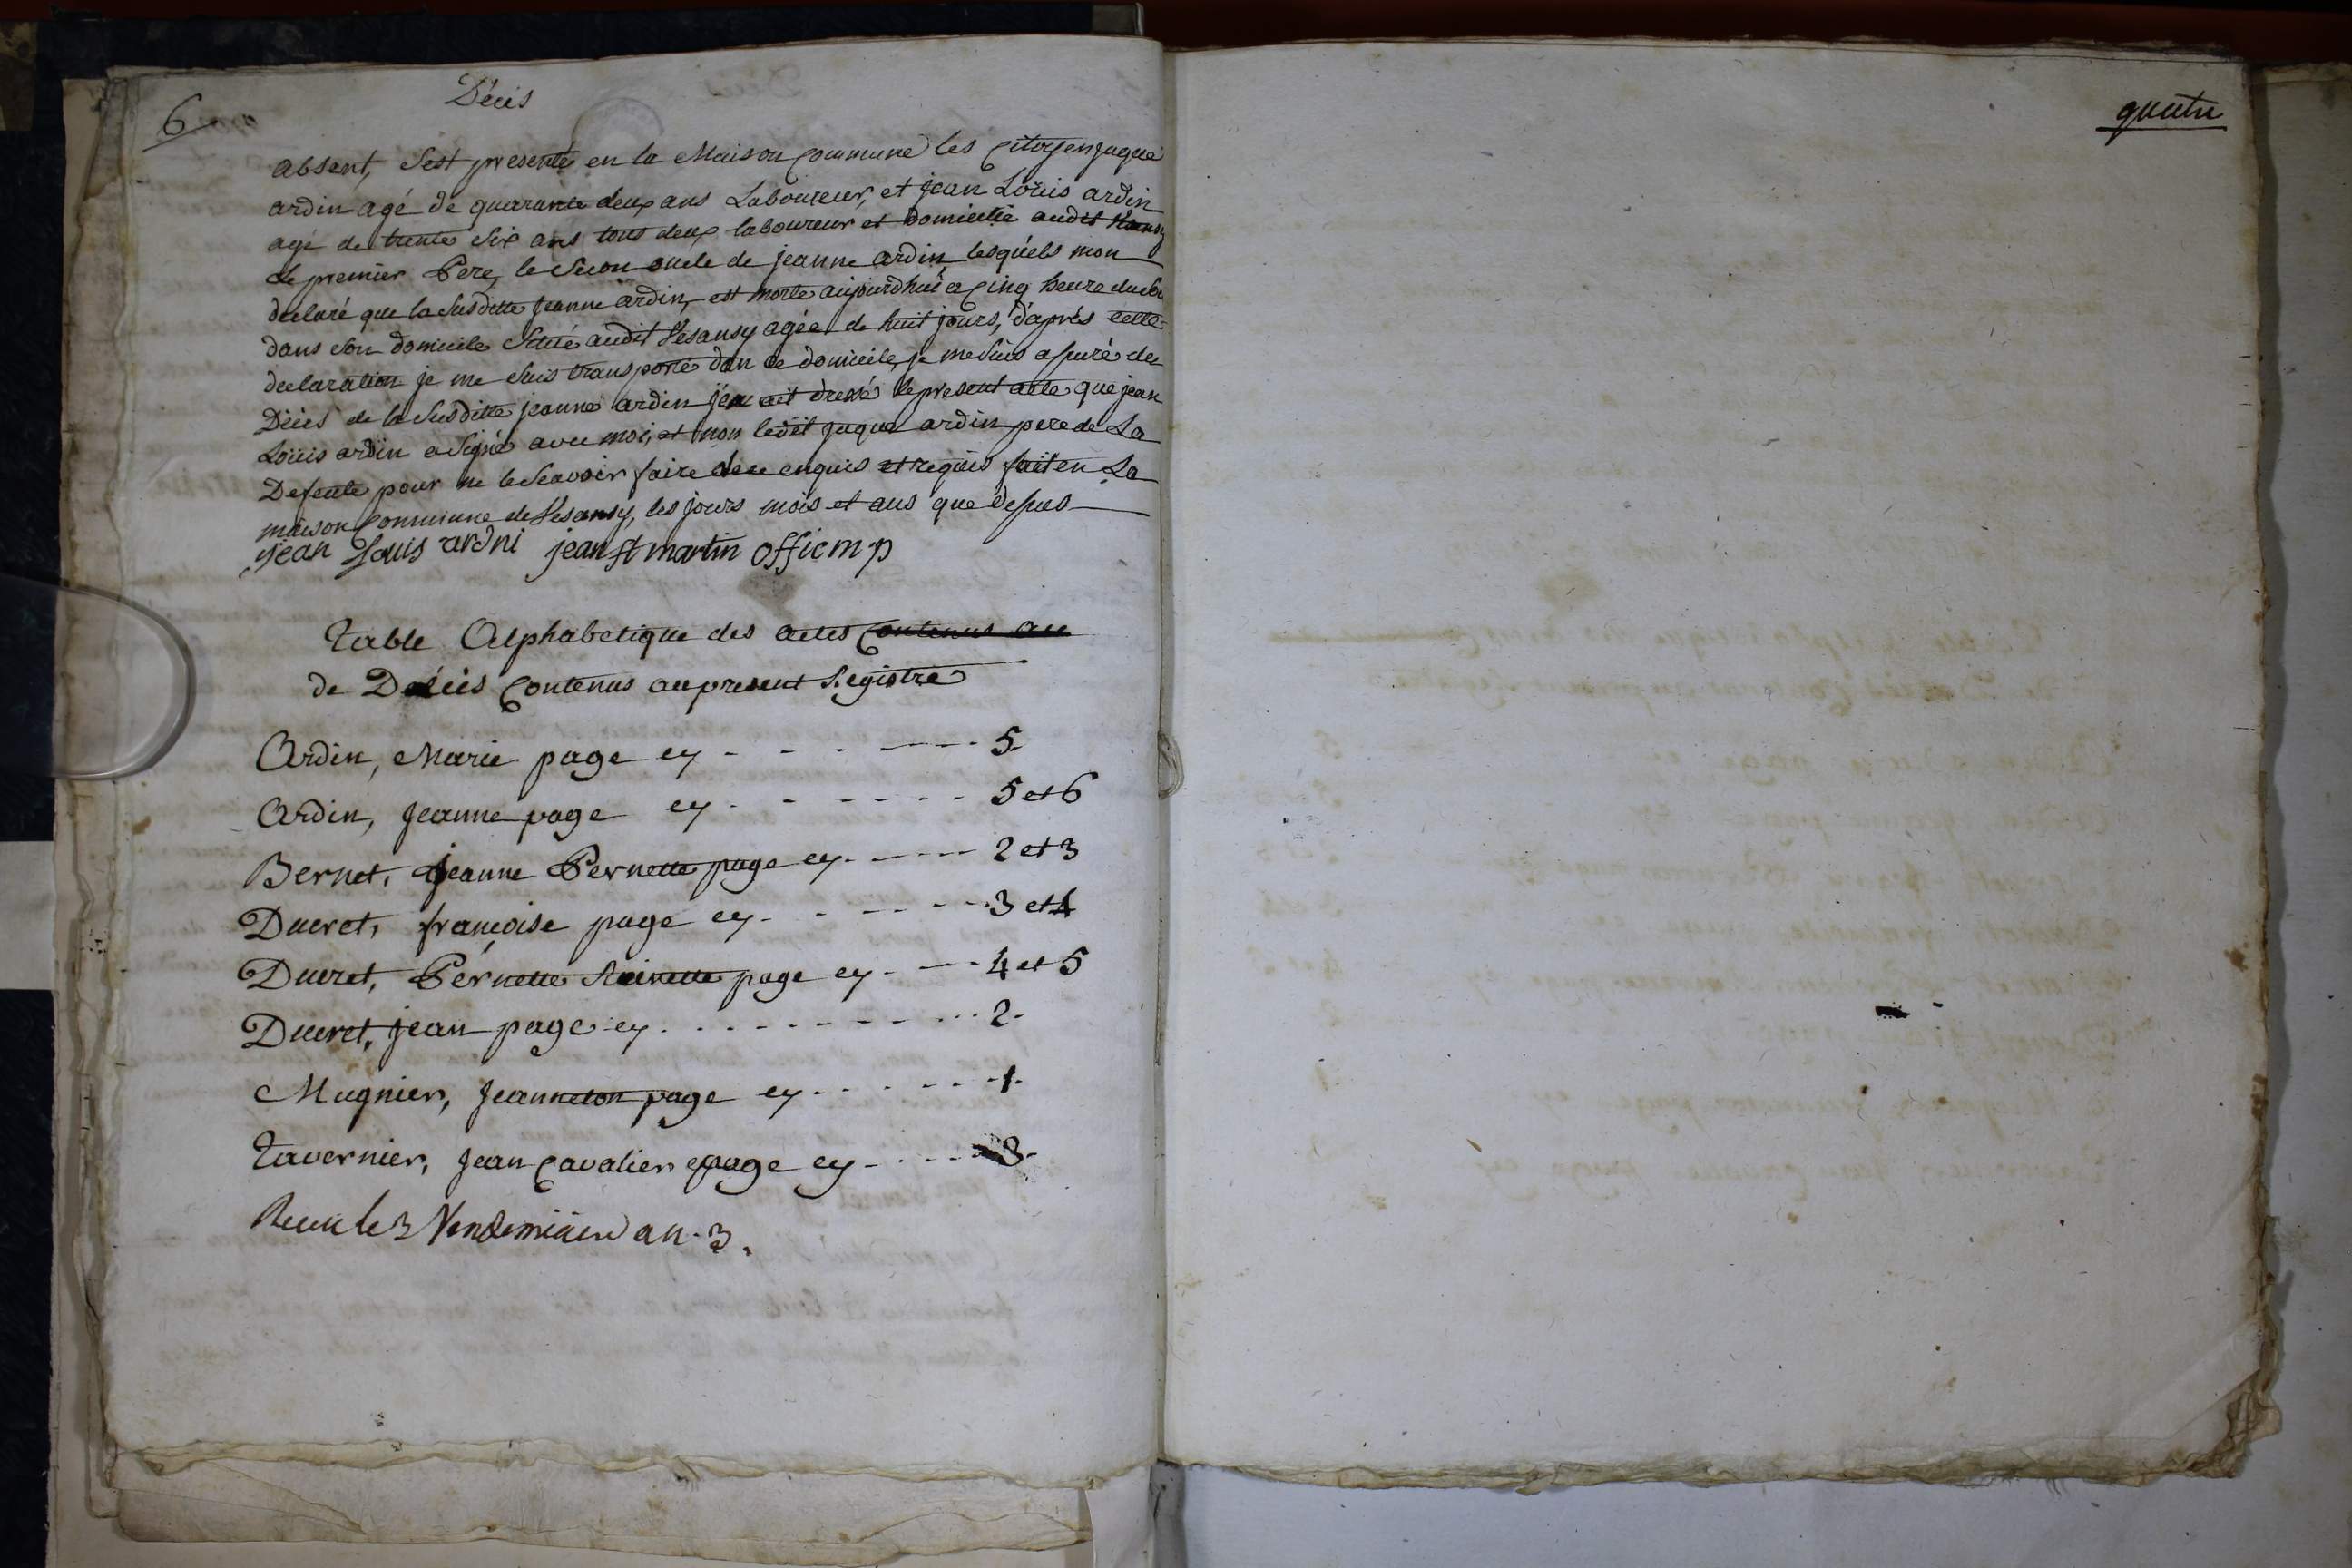 6
Décès
absent, s'est presenté en la Maison Commune les Citoyen jaque
ardin agé de quarante deux ans Laboureur, et jean Loüis ardin
agé de trente Six ans tous deux laboureur et domicilié audit
le premier Pere, le Secon oncle de jeanne ardin, lesquels mon
declaré que la Susditte jeanne ardin, est morte aujourdhui a Cinq heure du
dans son domicile Situé audit Vesansy agée de huit jours, d'aprés cette
declaration je me Suis transporté dan ce domicile, je me Suis assuré du
Décés de la Susditte jeanne ardin j'en ait dressé le present acte que jean
Loüis ardin a Signé avec moi, et non ledit jaque ardin pere de La
Defente pour ne le Scavoir faire de ce enquis et requis fait en La
maison Commune de Vesansy, les jours mois et ans que dessus
jean Louis ardni jean st martin offic m p
Table Alphabetique des actes Contenus au
de Décès Contenus au present Registre
Ardin, Marie page cy - - - - - - 5-
Ardin, Jeanne page cy - - - - - - 5 et 6
Bernet, Jeanne Pernette page cy - - - - 2 et 3
Ducret, françoise page cy - - - - - 3 et 4
Ducret, Pernette page cy - - - 4 et 5
Ducret, jean page cy - - - - - - - - 2-
Mugnier, Jeanneton page cy - - - - - 1-
Tavernier, Jean Cavalier page cy - - - - 3-
le 3 Vendemiaire an 3.
quatre